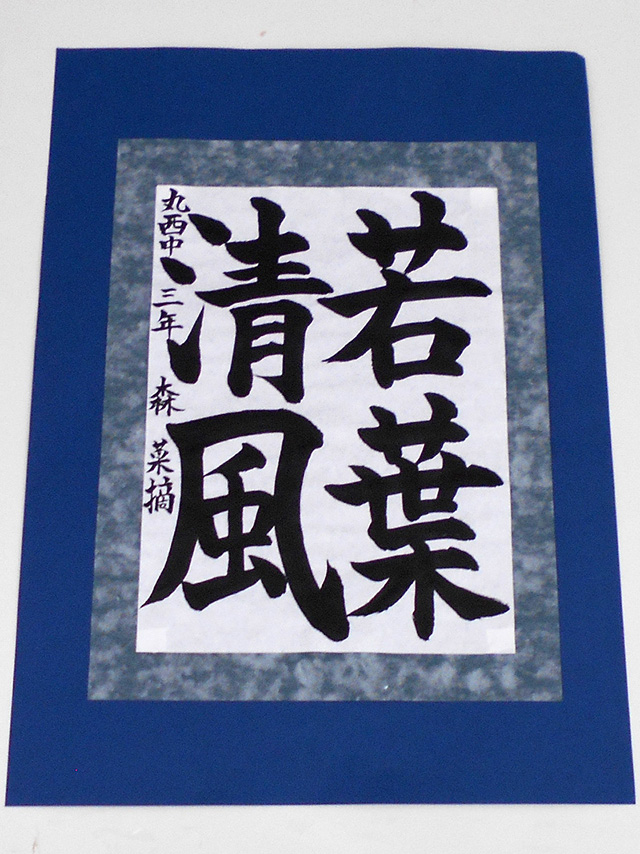 若葉
清風
丸西中 三年 森 菜摘